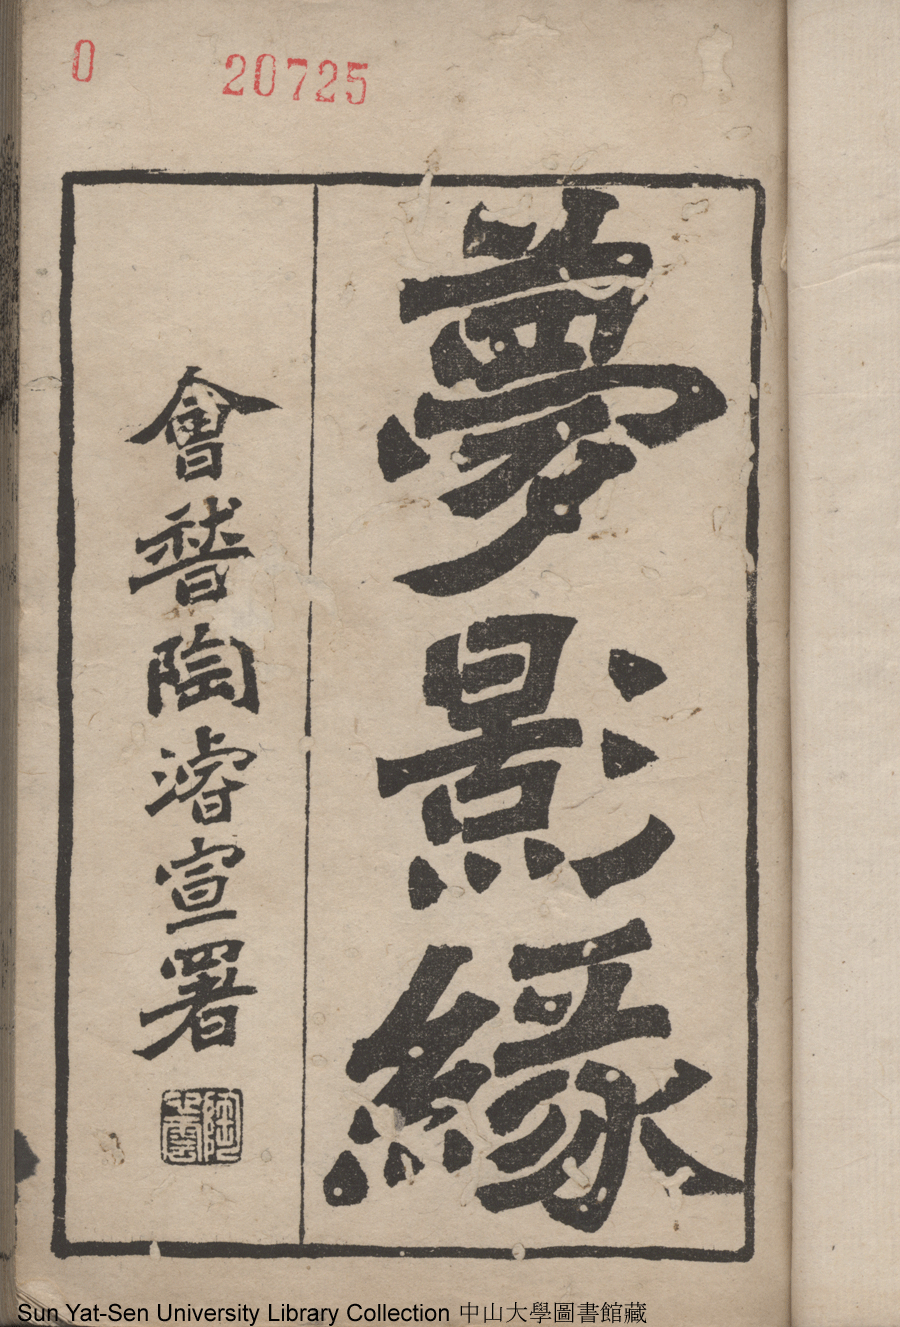 0 20725
夢影緣
會稽陶濬宣署
Sun Yat-Sen University Library Collection 中山大學圖書館藏